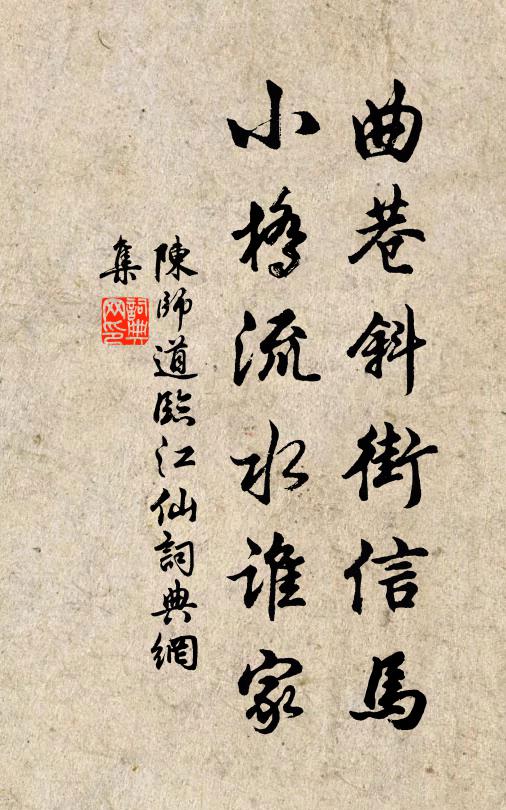 曲巷斜街信馬
小橋流水誰家
陳師道臨江仙詞典網
集
詞典網印